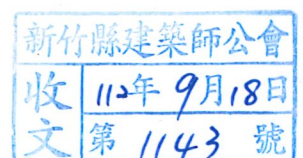 新竹縣建築師公會
收文
112年9月18日
第 1143 號